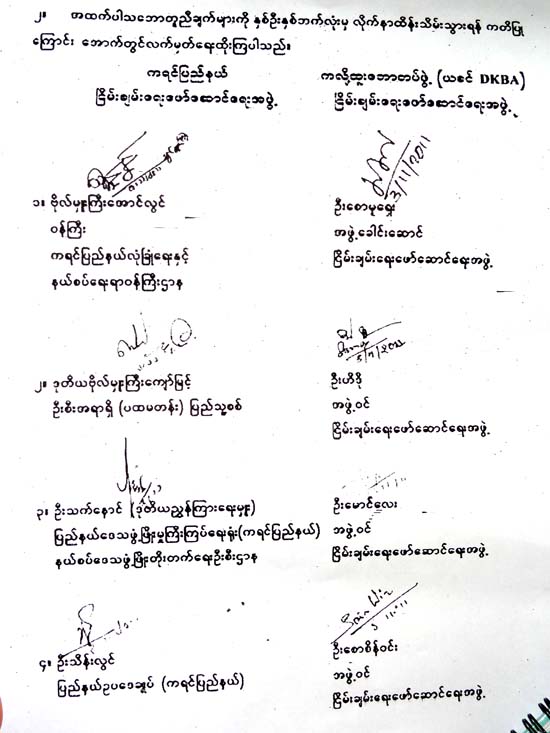 ၂။ အထက်ပါသဘောတူညီချက်များကို နှစ်ဦးနှစ်ဘက်လုံးမှ လိုက်နာထိန်းသိမ်းသွားရန် ကတိပြု
ကြောင်း အောက်တွင်လက်မှတ်ရေးထိုးကြပါသည်။
ကရင်ပြည်နယ်
ငြိမ်းချမ်းရေးဖော်ဆောင်ရေးအဖွဲ့
ကလို့ထူးဘောတပ်ဖွဲ့ (ယခင် DKBA)
ငြိမ်းချမ်းရေးဖော်ဆောင်ရေးအဖွဲ့
3/11/2011
၁။ ဗိုလ်မှူးကြီးအောင်လွင်
ဝန်ကြီး
ကရင်ပြည်နယ်လုံခြုံရေးနှင့်
နယ်စပ်ရေးရာဝန်ကြီးဌာန
ဦးစောမုရှေး
အဖွဲ့ခေါင်းဆောင်
ငြိမ်းချမ်းရေးဖော်ဆောင်ရေးအဖွဲ့
၂။ ဒုတိယဗိုလ်မှူးကြီးကျော်မြင့်
ဦးစီးအရာရှိ (ပထမတန်း) ပြည်သူ့စစ်
ဦးဟီဒို
အဖွဲ့ဝင်
ငြိမ်းချမ်းရေးဖော်ဆောင်ရေးအဖွဲ့
၃။ ဦးသက်နောင် (ဒုတိယညွှန်ကြားရေးမှူး)
ပြည်နယ်ဒေသဖွံ့ဖြိုးမှုကြီးကြပ်ရေးရုံး(ကရင်ပြည်နယ်)
နယ်စပ်ဒေသဖွံ့ဖြိုးတိုးတက်ရေးဦးစီးဌာန
ဦးမောင်လေး
အဖွဲ့ဝင်
ငြိမ်းချမ်းရေးဖော်ဆောင်ရေးအဖွဲ့
Sain Win
၄။ ဦးသိန်းလွင်
ပြည်နယ်ဥပဒေချုပ် (ကရင်ပြည်နယ်)
ဦးစောစိန်ဝင်း
အဖွဲ့ဝင်
ငြိမ်းချမ်းရေးဖော်ဆောင်ရေးအဖွဲ့